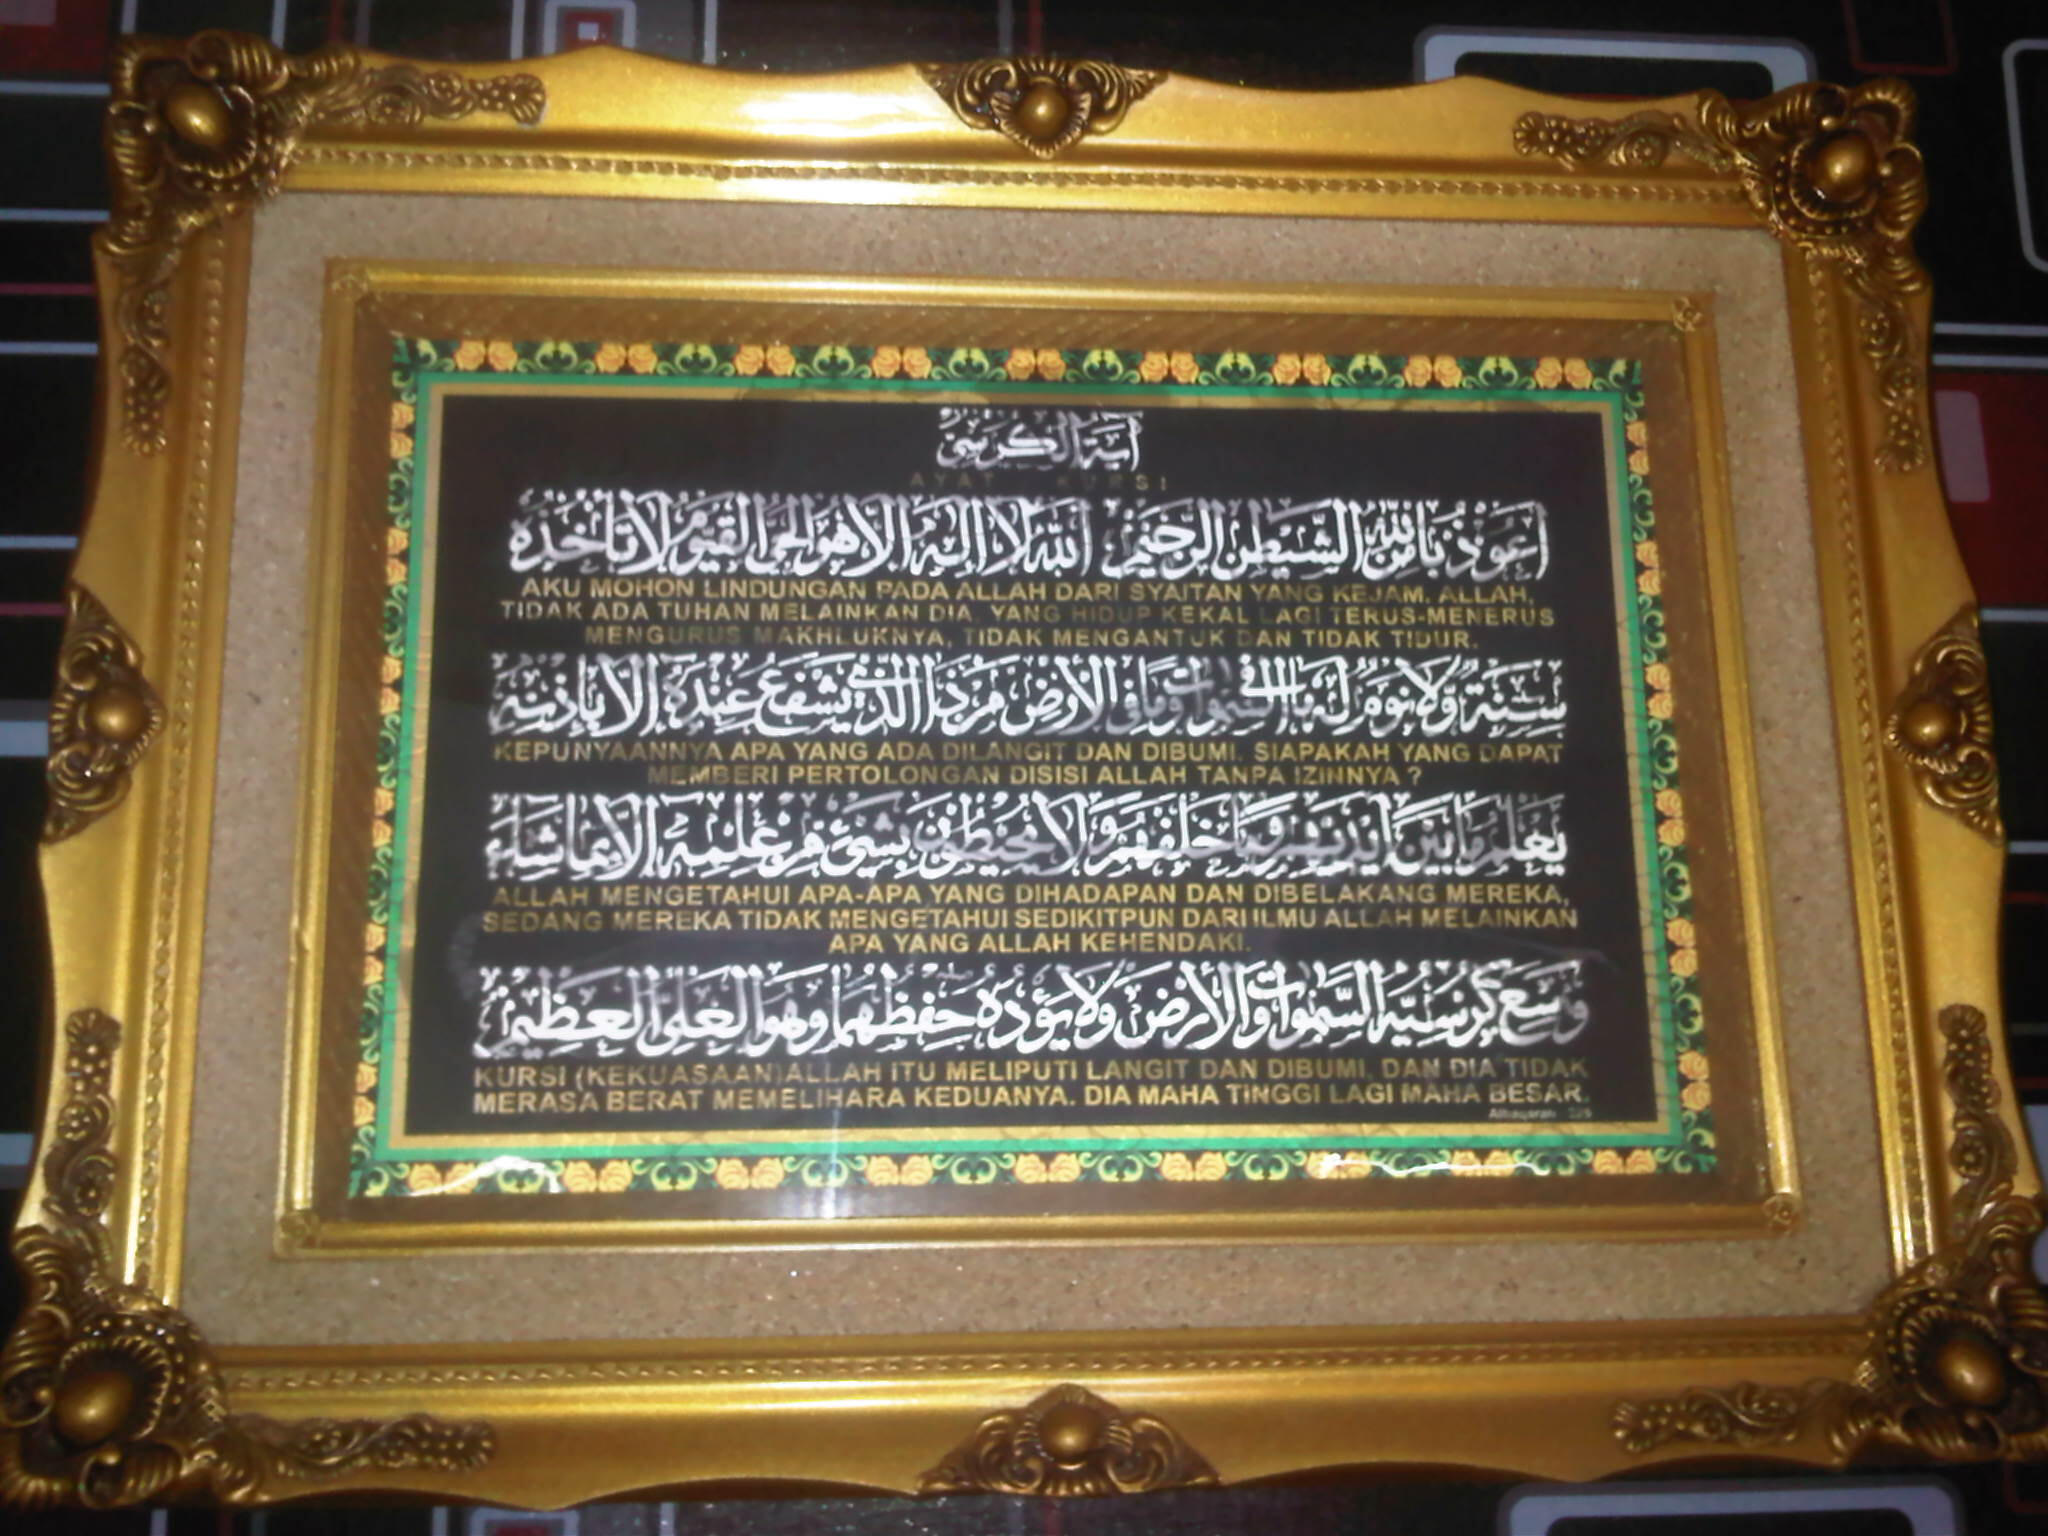 آية الكرسي
AYAT KURSI
أعوذ بالله من الشيطن الرجيم الله لا إله إلا هو الحي القيوم لا تأخذه
AKU MOHON LINDUNGAN PADA ALLAH DARI SYAITAN YANG KEJAM. ALLAH,
TIDAK ADA TUHAN MELAINKAN DIA, YANG HIDUP KEKAL LAGI TERUS-MENERUS
MENGURUS MAKHLUKNYA, TIDAK MENGANTUK DAN TIDAK TIDUR.
سنة ولا نوم له ما في السموات وما في الأرض من ذا الذي يشفع عنده إلا بإذنه
KEPUNYAANNYA APA YANG ADA DILANGIT DAN DIBUMI. SIAPAKAH YANG DAPAT
MEMBERI PERTOLONGAN DISISI ALLAH TANPA IZINNYA ?
يعلم ما بين أيديهم وما خلفهم ولا يحيطون بشيء من علمه إلا بما شاء
ALLAH MENGETAHUI APA-APA YANG DIHADAPAN DAN DIBELAKANG MEREKA,
SEDANG MEREKA TIDAK MENGETAHUI SEDIKITPUN DARI ILMU ALLAH MELAINKAN
APA YANG ALLAH KEHENDAKI.
وسع كرسيه السموات والأرض ولا يؤده حفظهما وهو العلي العظيم
KURSI (KEKUASAAN)ALLAH ITU MELIPUTI LANGIT DAN DIBUMI, DAN DIA TIDAK
MERASA BERAT MEMELIHARA KEDUANYA. DIA MAHA TINGGI LAGI MAHA BESAR.
Albaqarah